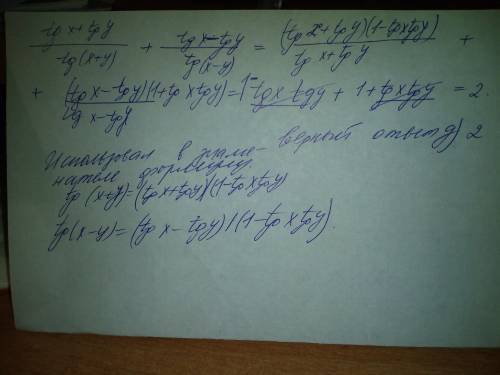 (tg x + tg y)/(tg(x+y)) + (tg x - tg y)/(tg(x-y)) = ((tg x + tg y)(1 - tg x tg y))/(tg x + tg y) +
+ ((tg x - tg y)(1 + tg x tg y))/(tg x - tg y) = 1 - tg x tg y + 1 + tg x tg y = 2.
Использовал в знаме- верный ответ д) 2
нателе формулу
tg(x+y) = (tg x + tg y)/(1 - tg x tg y)
tg(x-y) = (tg x - tg y)/(1 - tg x tg y).